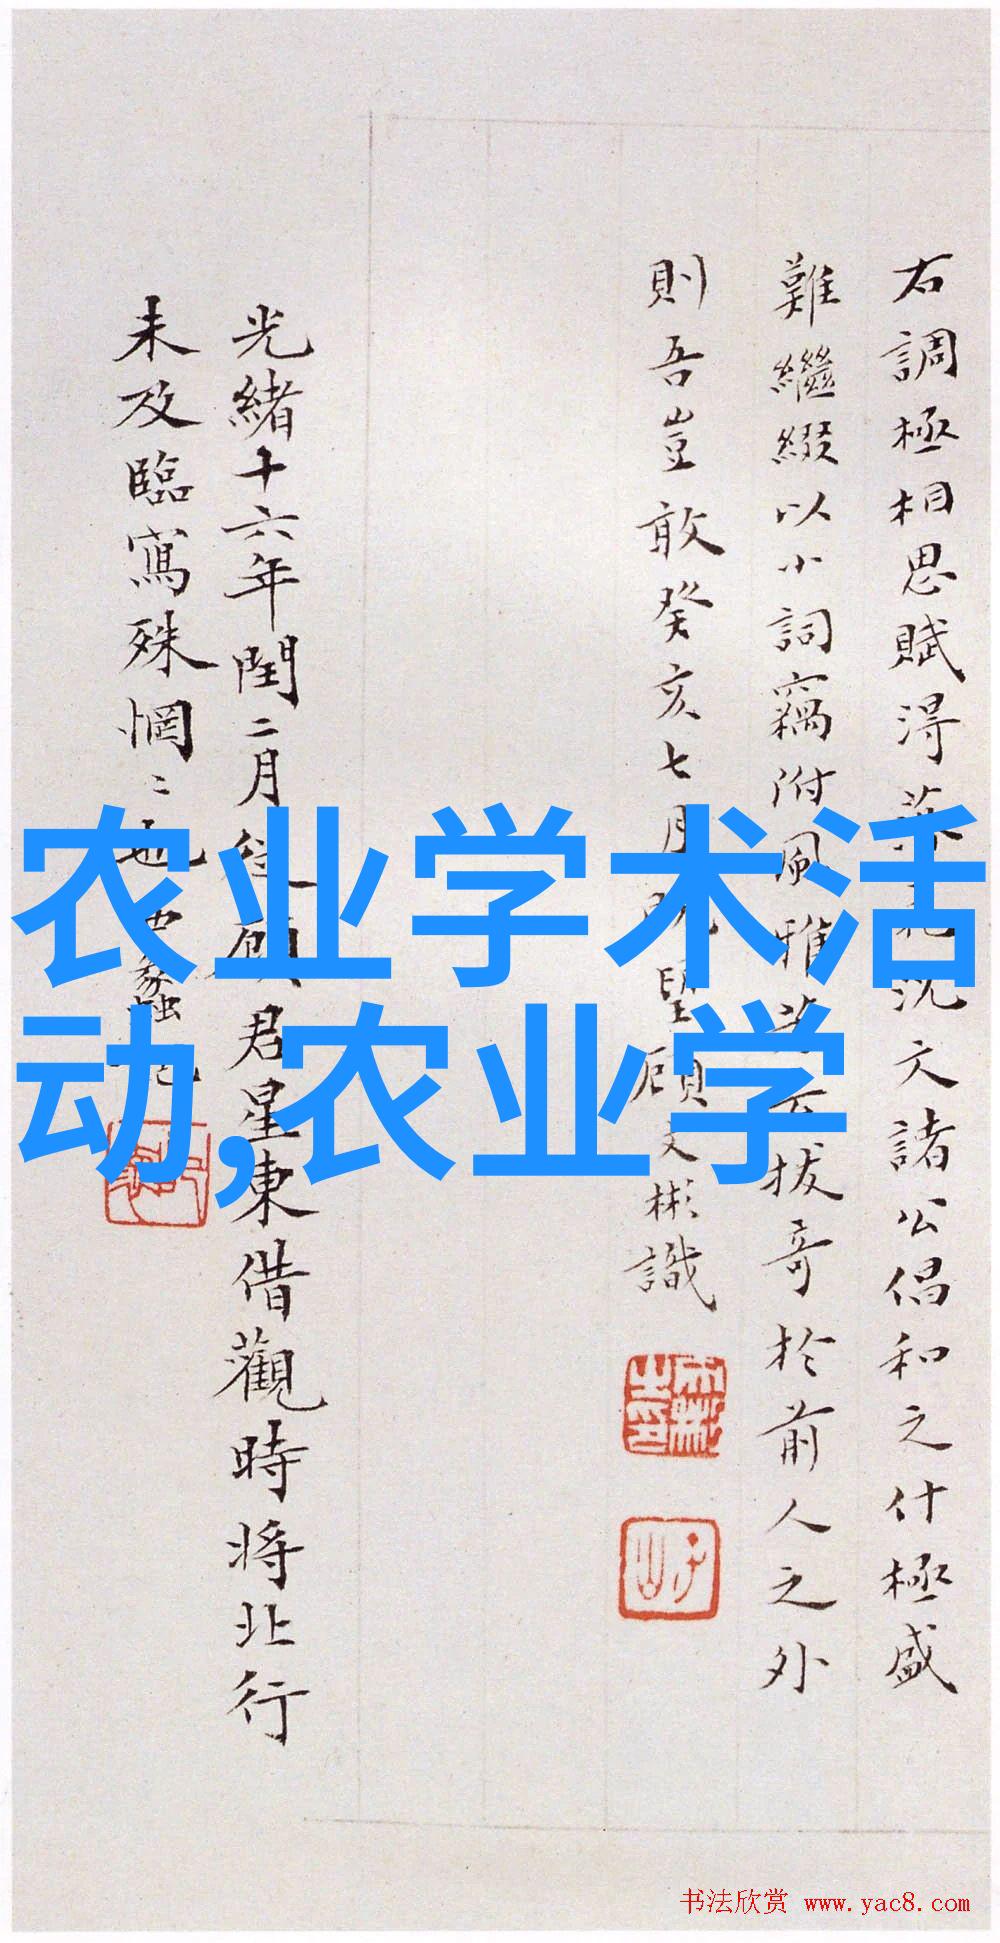 右調極相思賦得沈文諸公倡和之什極盛
難繼綴以小詞竊附風雅拔奇於前人之外
則吾豈敢癸亥七月既望顧文彬識
文彬之印
子山
光緒十六年閏二月從顧君星東借觀時將北行
未及臨寫殊惘〻也 西蠡記
农业学术活
动,农业学
书法欣赏 www.yac8.com